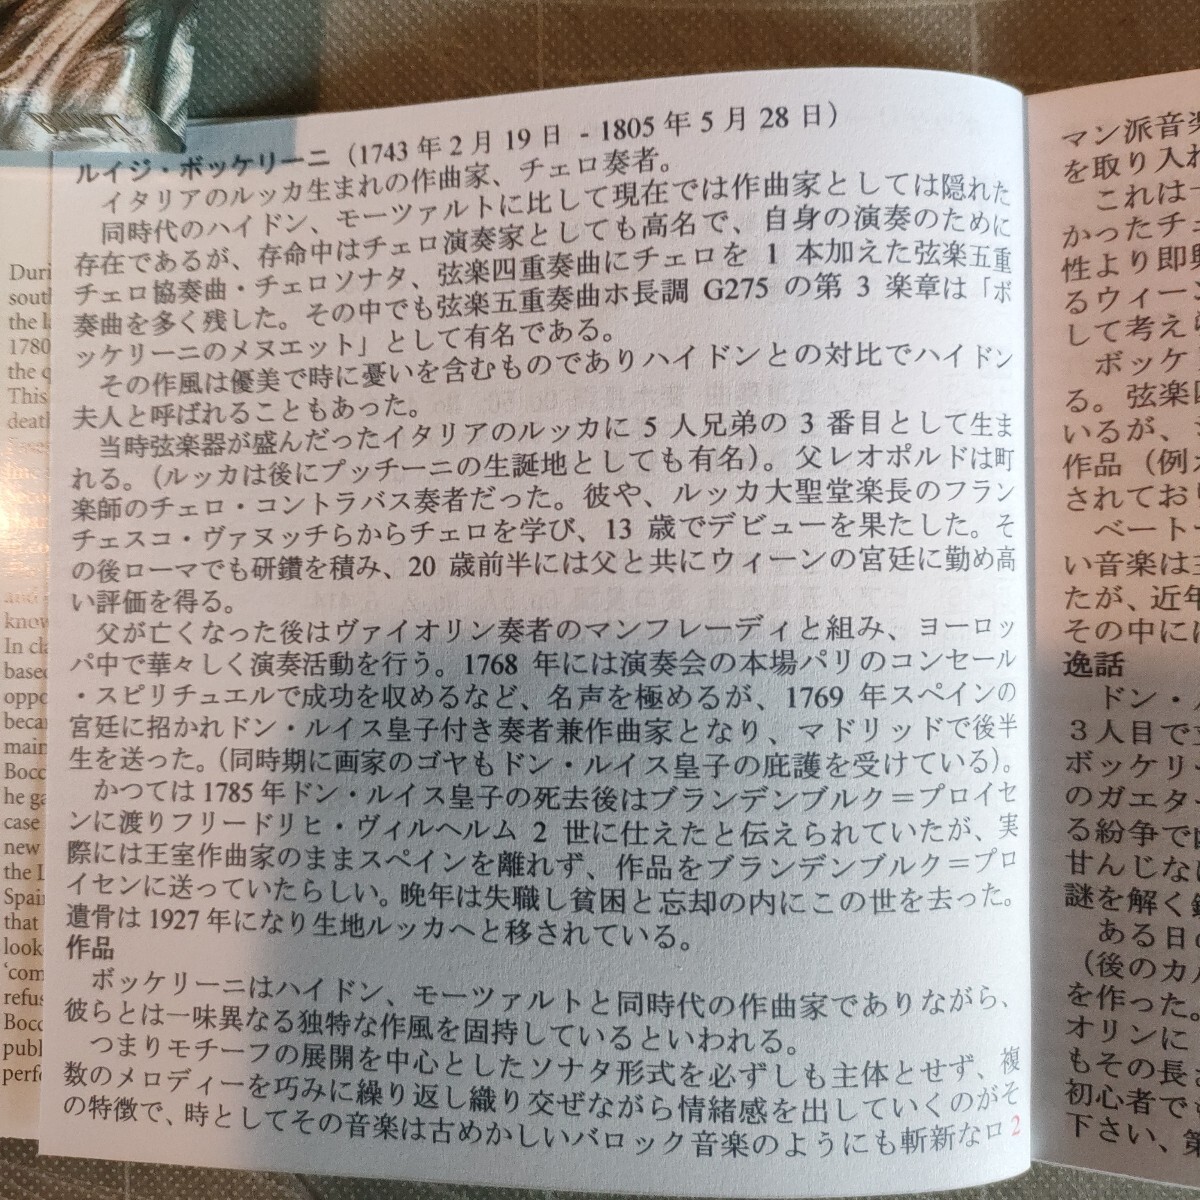 ルイジ・ボッケリーニ（1743 年 2 月 19 日 - 1805 年 5 月 28 日）
イタリアのルッカ生まれの作曲家、チェロ奏者。
同時代のハイドン、モーツァルトに比して現在では作曲家としては隠れた
存在であるが、存命中はチェロ演奏家としても高名で、自身の演奏のために
チェロ協奏曲・チェロソナタ、弦楽四重奏曲にチェロを 1 本加えた弦楽五重
奏曲を多く残した。その中でも弦楽五重奏曲ホ長調 G275 の第 3 楽章は「ボ
ッケリーニのメヌエット」として有名である。
その作風は優美で時に憂いを含むものでありハイドンとの対比でハイドン
夫人と呼ばれることもあった。
当時弦楽器が盛んだったイタリアのルッカに 5 人兄弟の 3 番目として生ま
れる。（ルッカは後にプッチーニの生誕地としても有名）。父レオポルドは町
楽師のチェロ・コントラバス奏者だった。彼や、ルッカ大聖堂楽長のフラン
チェスコ・ヴァヌッチらからチェロを学び、13 歳でデビューを果たした。そ
の後ローマでも研鑽を積み、20 歳前半には父と共にウィーンの宮廷に勤め高
い評価を得る。
父が亡くなった後はヴァイオリン奏者のマンフレーディと組み、ヨーロッ
パ中で華々しく演奏活動を行う。1768 年には演奏会の本場パリのコンセール
・スピリチュエルで成功を収めるなど、名声を極めるが、1769 年スペインの
宮廷に招かれドン・ルイス皇子付き奏者兼作曲家となり、マドリッドで後半
生を送った。（同時期に画家のゴヤもドン・ルイス皇子の庇護を受けている）。
かつては 1785 年ドン・ルイス皇子の死去後はブランデンブルク＝プロイセ
ンに渡りフリードリヒ・ヴィルヘルム 2 世に仕えたと伝えられていたが、実
際には王室作曲家のままスペインを離れず、作品をブランデンブルク＝プロ
イセンに送っていたらしい。晩年は失職し貧困と忘却の内にこの世を去った。
遺骨は 1927 年になり生地ルッカへと移されている。
作品
ボッケリーニはハイドン、モーツァルトと同時代の作曲家でありながら、
彼らとは一味異なる独特な作風を固持しているといわれる。
つまりモチーフの展開を中心としたソナタ形式を必ずしも主体とせず、複
数のメロディーを巧みに繰り返し織り交ぜながら情緒感を出していくのがそ
の特徴で、時としてその音楽は古めかしいバロック音楽のようにも斬新なロ
2
マン派音楽
を取り入れ
これは
かったチェ
性より即興
るウィーン
して考え
ボッケ
る。弦楽四
いるが、
作品（例え
されてお
ベート
い音楽は
たが、近年
その中に
逸話
ドン・
3 人目で
ボッケリー
のガエタ
る紛争で
甘んじな
謎を解く
ある日の
（後のカ
を作った。
オリンに
もその長
初心者で
下さい、第
Duri
south
the k
1780
the q
This
death
know
In cla
based
oppo
becar
main
Bocc
he ga
case
new
the L
Spain
that
look
‘com
refus
Bocc
publ
perfo